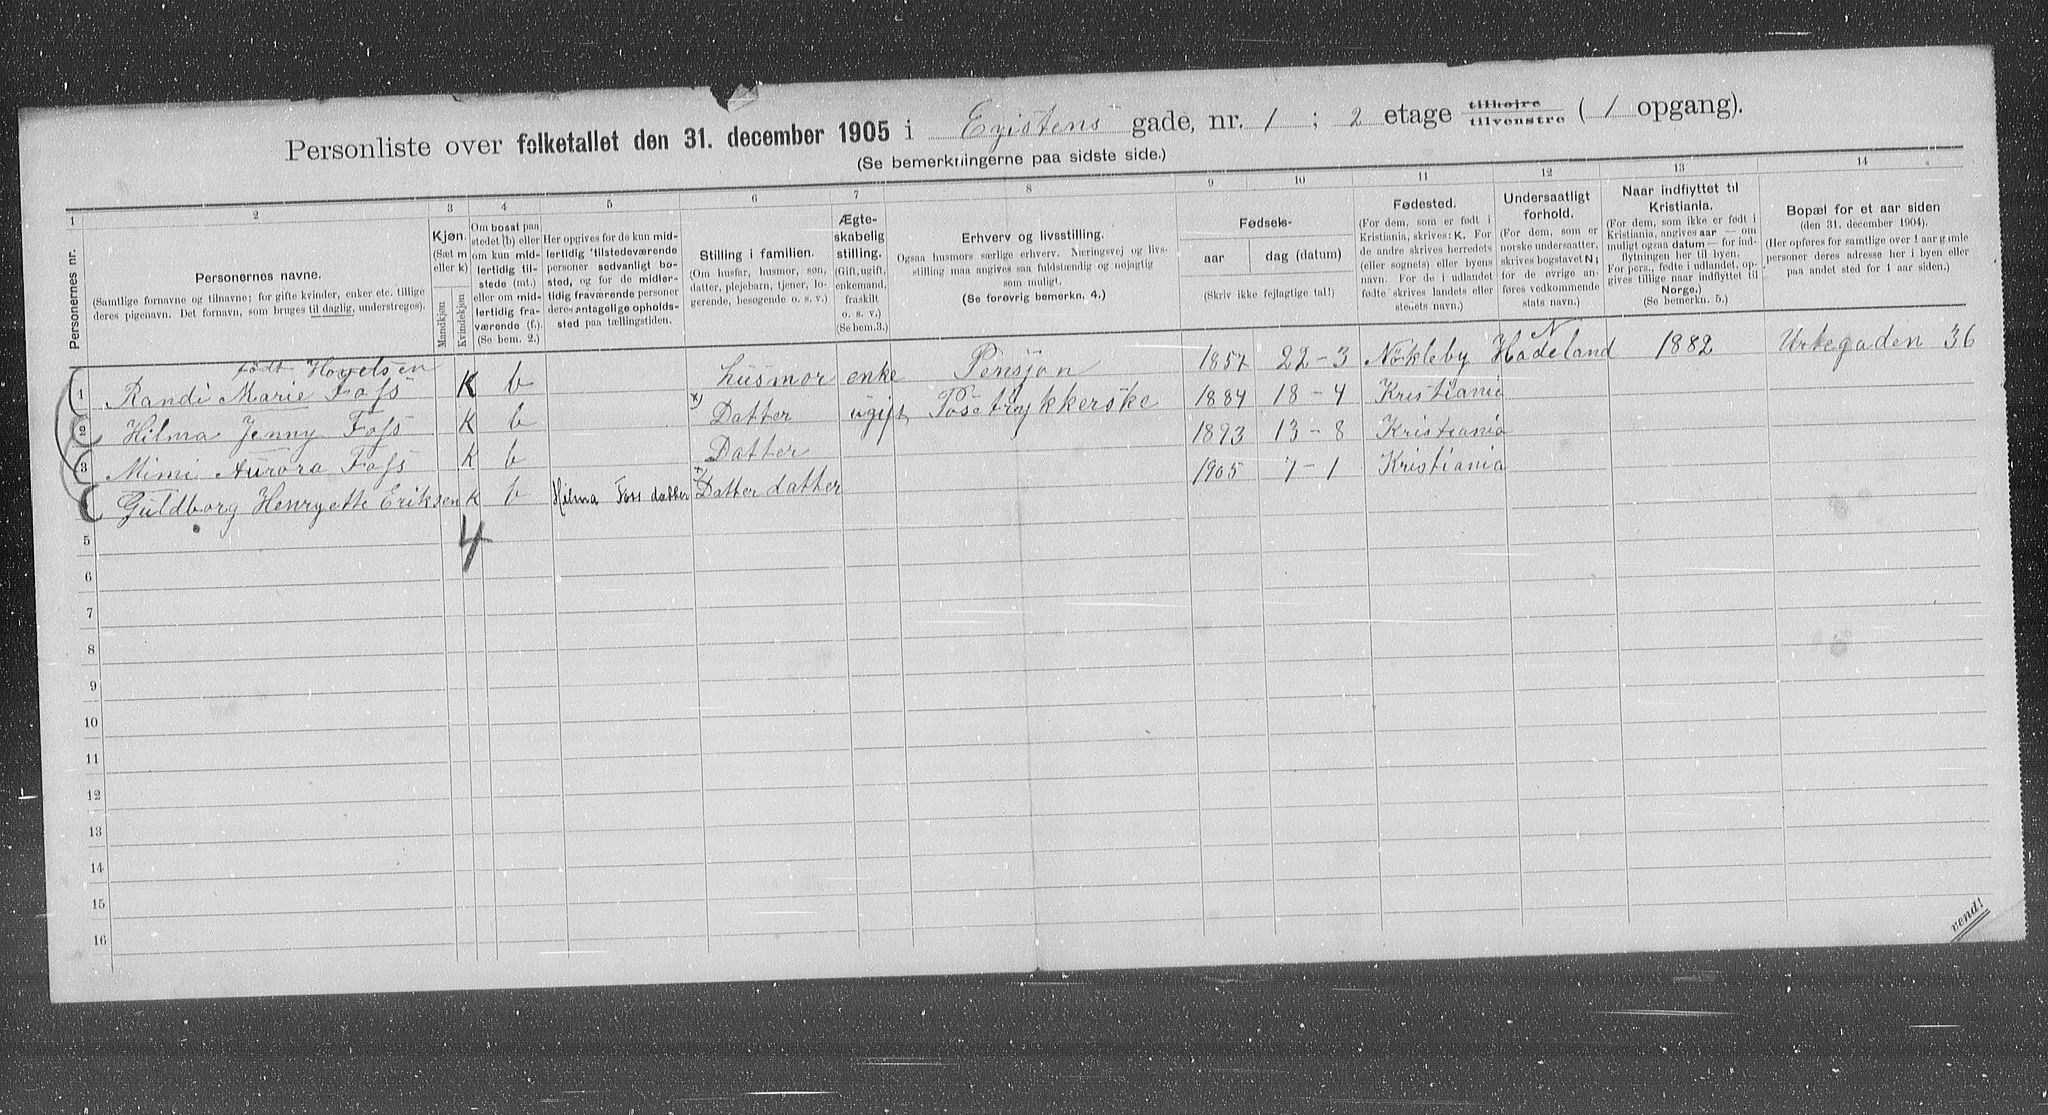 Personliste over folketallet den 31. december 1905 i Existens gade, nr. 1 ; 2 etage tilhøjre tilvenstre ( 1 opgang).
(Se bemerkningerne paa sidste side.)
1 2 3 4 5 6 7 8 9 10 11 12 13 14
Personernes nr.
Personernes navne.
(Samtlige fornavne og tilnavne; for gifte kvinder, enker etc. tillige
deres pigenavn. Det fornavn, som bruges til daglig, understreges).
Kjøn.
(Sæt m
eller k)
Mandkjøn
Kvindekjøn
Om bosat paa
stedet (b) eller
om kun mid-
lertidig til-
stede (mt.)
eller om mid-
lertidig fra-
værende (f.).
(Se bem. 2.)
Her opgives for de kun mid-
lertidig tilstedeværende
personer sedvanligt bo-
sted, og for de midler-
tidig fraværende personer
deres antagelige opholds-
sted paa tællingstiden.
Stilling i familien.
(Om husfar, husmor, søn,
datter, plejebarn, tjener, lo-
gerende, besøgende o. s. v.)
Ægte-
skabelig
stilling.
(Gift, ugift,
enkemand,
fraskilt
o. s. v.)
(Se bem.3.)
Erhverv og livsstilling.
Ogsaa husmors særlige erhverv. Næringsvej og livs-
stilling maa angives saa fuldstændig og nøjagtig
som muligt.
(Se forøvrig bemerkn. 4.)
Fødsels-
aar
dag (datum)
(Skriv ikke fejlagtige tal!)
Fødested.
(For dem, som er født i
Kristiania, skrives: K. For
de andre skrives herredets
(eller sognets) eller byens
navn. For de i udlandet
fødte skrives landets eller
stedets navn.)
Undersaatligt
forhold.
(For dem, som er
norske undersaatter,
skrives bogstavet N;
for de øvrige an-
føres vedkommende
stats navn.)
Naar indflyttet til
Kristiania.
(For dem, som ikke er født i
Kristiania, angives aar — om
muligt ogsaa datum — for ind-
flytningen her til byen.
For pers., fødte i udlandet, op-
gives tillige naar indflyttet til
Norge.)
(Se bemerkn. 5.)
Bopæl for et aar siden
(den 31. december 1904).
(Her opføres for samtlige over 1 aar gamle
personer deres adresse her i byen eller
paa andet sted for 1 aar siden.)
født Hovelsen
1 Randi Marie Fofs K b husmor enke Pensjon 1857 22-3 Nökleby Hadeland N 1882 Urtegaden 36
2 Hilma Jenny Fofs K b x) Datter ugift Posetrykkerske 1884 18-4 Kristiania
3 Mimi Aurora Fofs K b Datter 1893 13-8 Kristiania
Guldborg Henryette Eriksen K b Hilma Foss datter x) Datter datter 1905 7-1 Kristiania
4
5
6
7
8
9
10
11
12
13
14
15
16
vend!